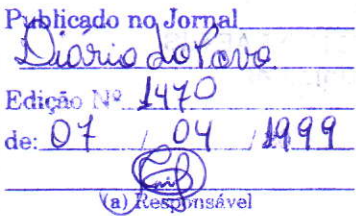 Publicado no Jornal
Diário do Povo
Edição Nº 1470
de: 07 / 04 / 1999
(a) Responsável